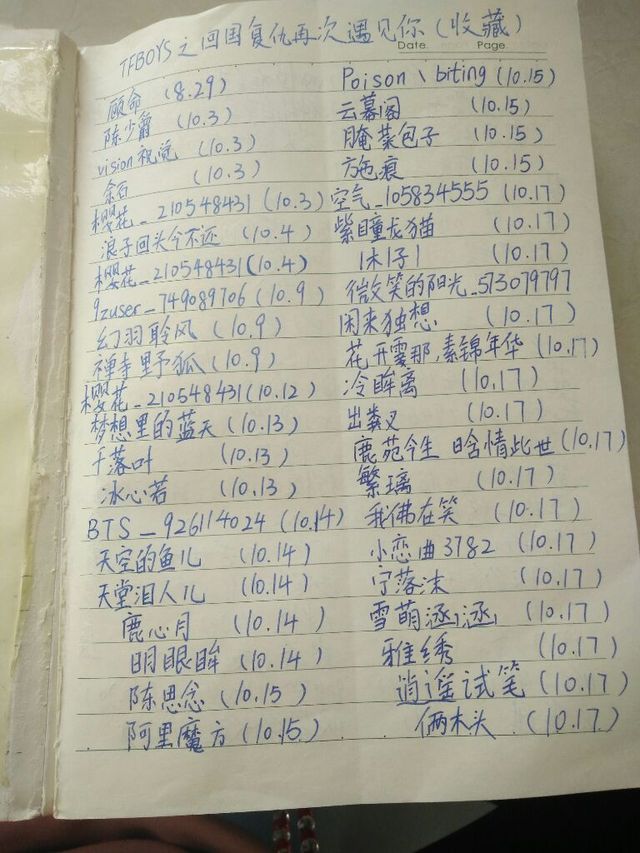 TFBOYS之回国复仇再次遇见你(收藏)
Date. Page.
顾命 (8.29)
陈少爺 (10.3)
vision视觉 (10.3)
余石 (10.3)
樱花_210548431 (10.3)
浪子回头今不还 (10.4)
樱花_210548431 (10.4)
9zuser_749089706 (10.9)
幻羽聆风 (10.9)
禅寺野狐 (10.9)
樱花_210548431 (10.12)
梦想里的蓝天 (10.13)
千落叶 (10.13)
冰心若 (10.13)
BTS_926114024 (10.14)
天空的鱼儿 (10.14)
天堂泪人儿 (10.14)
鹿心月 (10.14)
明眼眸 (10.14)
陈思念 (10.15)
阿里魔方 (10.15)
Poison、biting (10.15)
云暮阁 (10.15)
腌菜包子 (10.15)
方包痕 (10.15)
空气_105834555 (10.17)
紫瞳龙猫 (10.17)
木子 (10.17)
微笑的阳光_573079797
闲来独想 (10.17)
花开霎那,素锦年华 (10.17)
冷眸离 (10.17)
出粪叉 (10.17)
鹿苑今生 晗情此世 (10.17)
繁璃 (10.17)
我佛在笑 (10.17)
小恋曲3782 (10.17)
宁落沫 (10.17)
雪萌涵涵 (10.17)
雅绣 (10.17)
逍遥试笔 (10.17)
俩木头 (10.17)